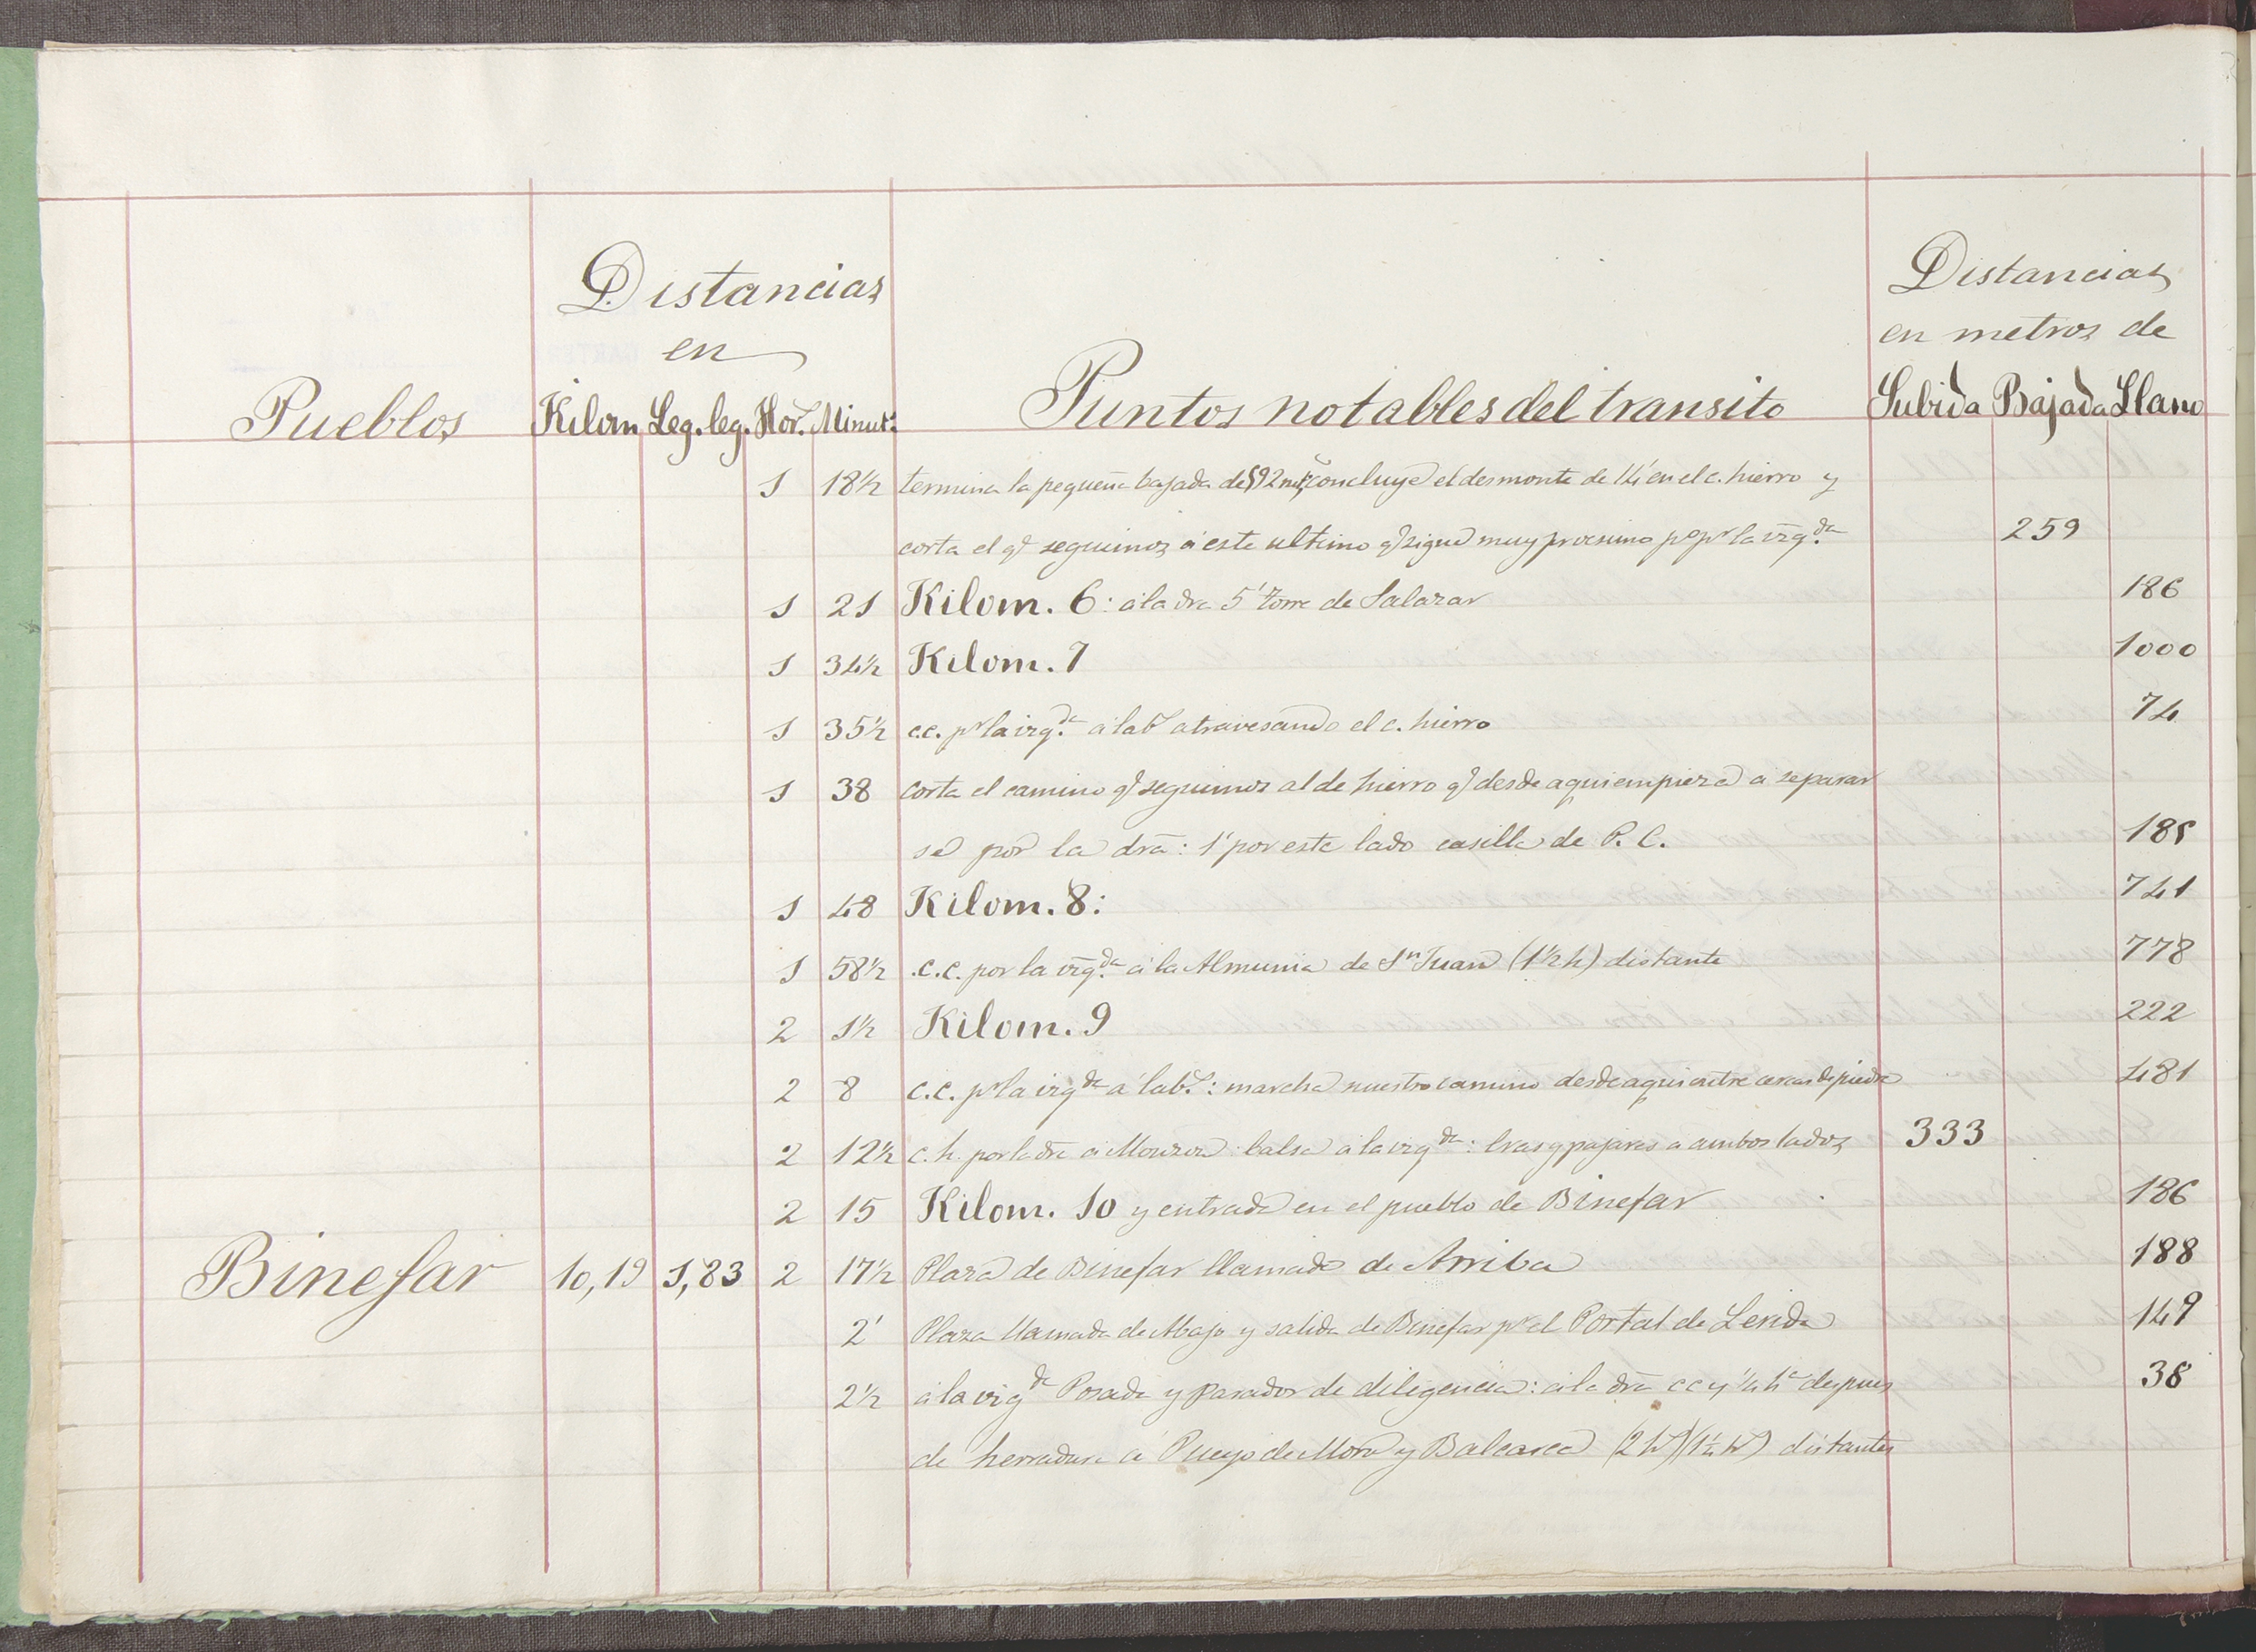 Distancias
en
Distancias
en metros de
Pueblos Kilom Leg. leg. Hor.s Minut.s Puntos notables del transito Subida Bajada Llano
1 18½ termina la pequeña bajada de concluye el desmonte de 14' en el c. hierro y
corta el q.e seguimos á este ultimo q.e sigue muy procsimo p.r la izq.da 259
1 21 Kilom. 6: á la dra 5' torre de Salazar 186
1 34½ Kilom. 7 1000
1 35½ c.c. p.r la izq.da á lab.s atravesando el c. hierro 74
1 38 corta el camino q.e seguimos al de hierro q.e desde aqui empieza á separar
se por la dra: 1' por este lado casilla de P. C. 185
1 48 Kilom. 8: 741
1 58½ c.c. por la izq.da á la Almunia de S.n Juan (1½ h) distante 778
2 1½ Kilom. 9 222
2 8 c.c. p.r la izq.da á lab.s: marcha nuestro camino desde aqui entre cercas de piedra 481
2 12½ c. h. por la dra á Monzon: balsa á la izq.da: eras y pajares á ambos lados 333
2 15 Kilom. 10 y entrada en el pueblo de Binefar 186
Binefar 10,19 1,83 2 17½ Plaza de Binefar llamada de Arriba 188
2' Plaza llamada de Abajo y salida de Binefar p.r el Portal de Lerida 149
2½ á la izq.da Posada y parador de diligencia: á la dra c c y ¼ h.a despues 38
de herradura á Pueyo de Moro y Balcarca (2 h.s) (1¼ h.s) distantes